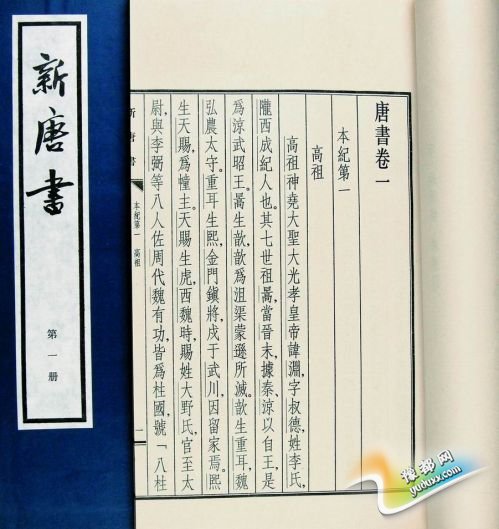 新唐書
第一册
唐書卷一
本紀第一
高祖
高祖神堯大聖大光孝皇帝諱淵,字叔德,姓李氏,
隴西成紀人也。其七世祖暠,當晉末,據秦、涼以自王,是
爲涼武昭王。暠生歆,歆爲沮渠蒙遜所滅。歆生重耳,魏
弘農太守。重耳生熙,金門鎮將,戍于武川,因留家焉。熙
生天賜,爲幢主。天賜生虎,西魏時,賜姓大野氏,官至太
尉,與李弼等八人佐周代魏有功,皆爲柱國,號「八柱
新唐書
本紀第一 高祖
一
豫都网
yuduxx.com